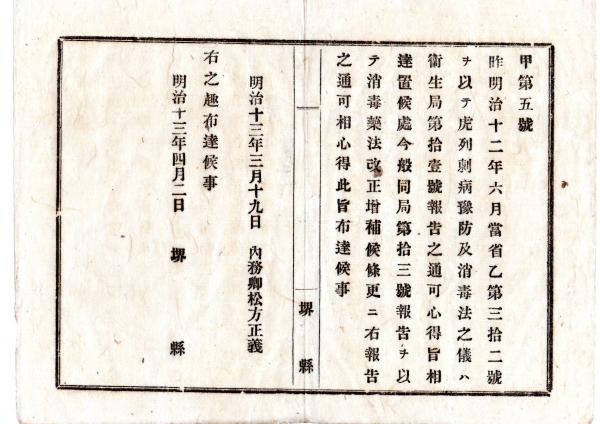 甲第五號
昨明治十二年六月當省乙第三拾二號
ヲ以テ虎列剌病豫防及消毒法之儀ハ
衞生局第拾壹號報告之通可心得旨相
達置候處今般同局第拾三號報告ヲ以
テ消毒藥法改正增補候條更ニ右報告
之通可相心得此旨布達候事
堺縣
明治十三年三月十九日 內務卿松方正義
右之趣布達候事
明治十三年四月二日 堺縣